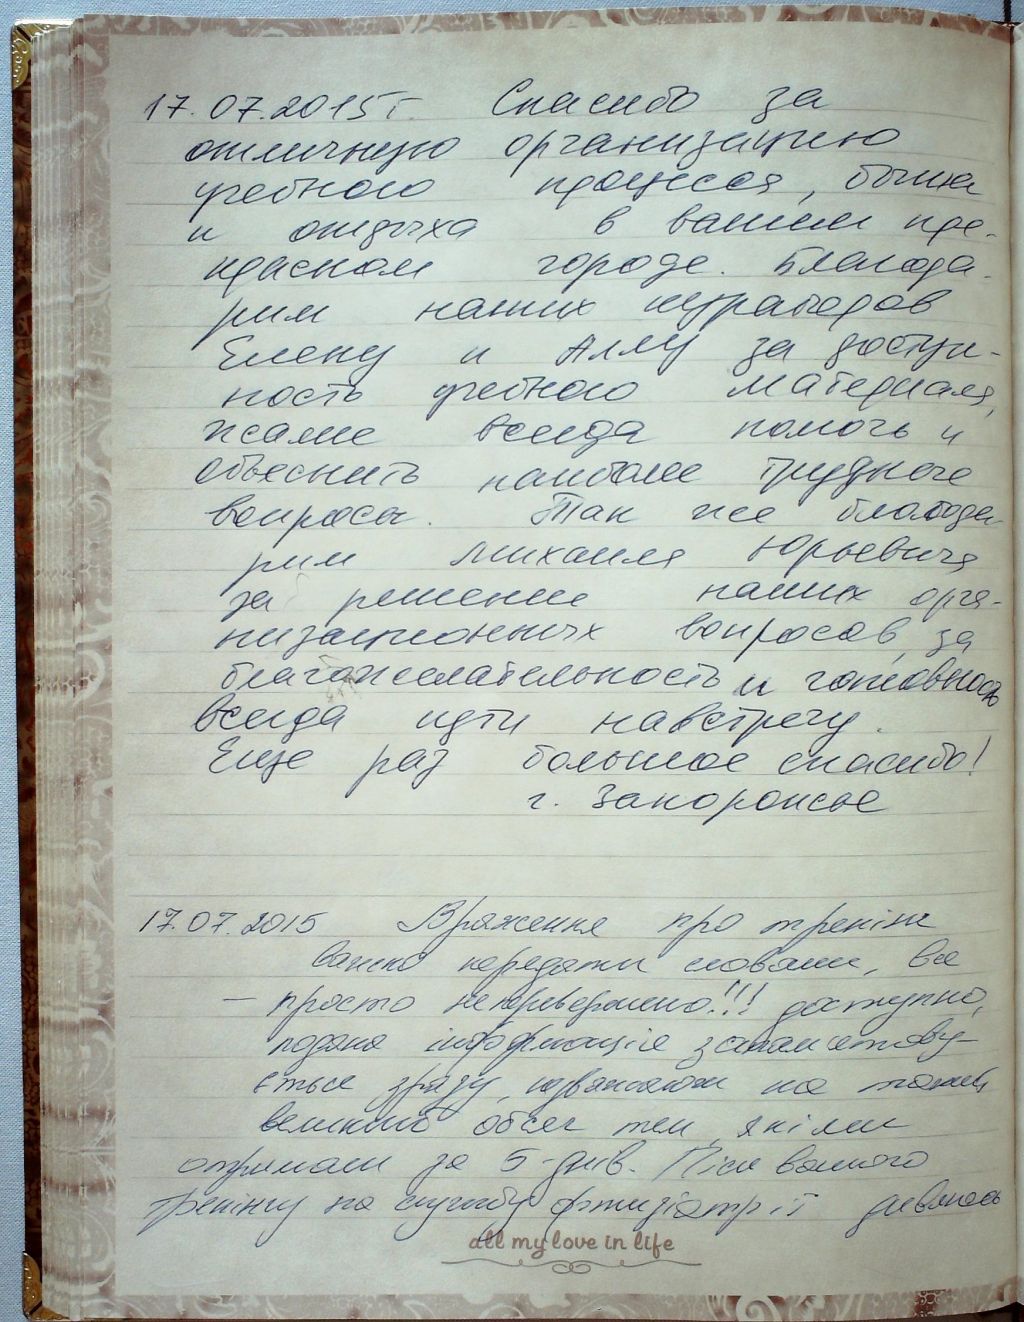 17.07.2015г. Спасибо за
отличную организацию
учебного процесса, быта
и отдыха в вашем пре-
красном городе. Благода-
рим наших кураторов
Елену и Аллу за доступ-
ность учебного материала,
желание всегда помочь и
объеснить наиболее трудные
вопросы. Так же благода-
рим Михаила Юрьевича
за решение наших орга-
низационных вопросов, за
благожелательность и готовность
всегда идти навстречу.
Еще раз большое спасибо!
г. Запорожье
17.07.2015 Враження про тренінг
важко передати словами, все
– просто неперевершено!!! доступно,
подана інформація запам'ятову-
ється зразу, незважаючи на такий
великий обсяг тем, які ми
отримали за 5-днів. Після вашого
тренінгу на службу фтизіатрії дивлюсь
all my love in life